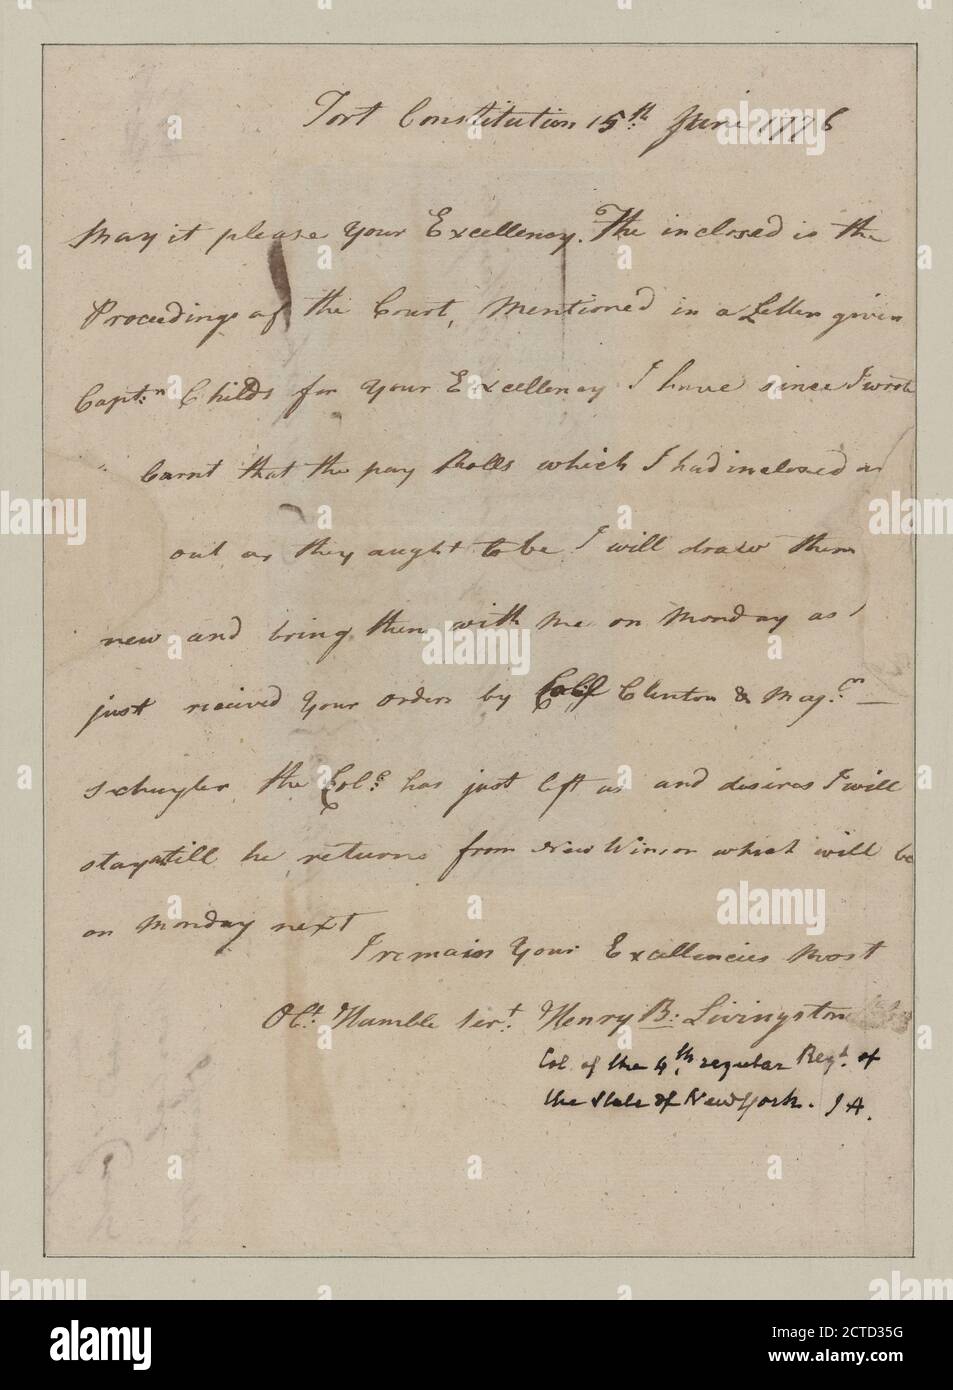 Fort Constitution 15th June 1776
May it please Your Excellency. The inclosed is the
Proceedings of the Court, Mentioned in a Letter given
Captn. Childs for Your Excellency I have since I wrote
larnt that the pay Rolls which I had inclosed ar
out as they aught to be I will draw them
new and bring them with me on Monday as I
just recieved Your orders by Clinton & Maj.
Schuyler, the Colo. has just left us and desires I will
stay still he returns from New Winsor which will be
on Monday next
I remain Your Excellencies Most
Obt. Humble Sert. Henry B: Livingston
Col. of the 4th. regular Regt. of
the State of New York. I A.
alamy
Image ID: 2CTD35G
www.alamy.com